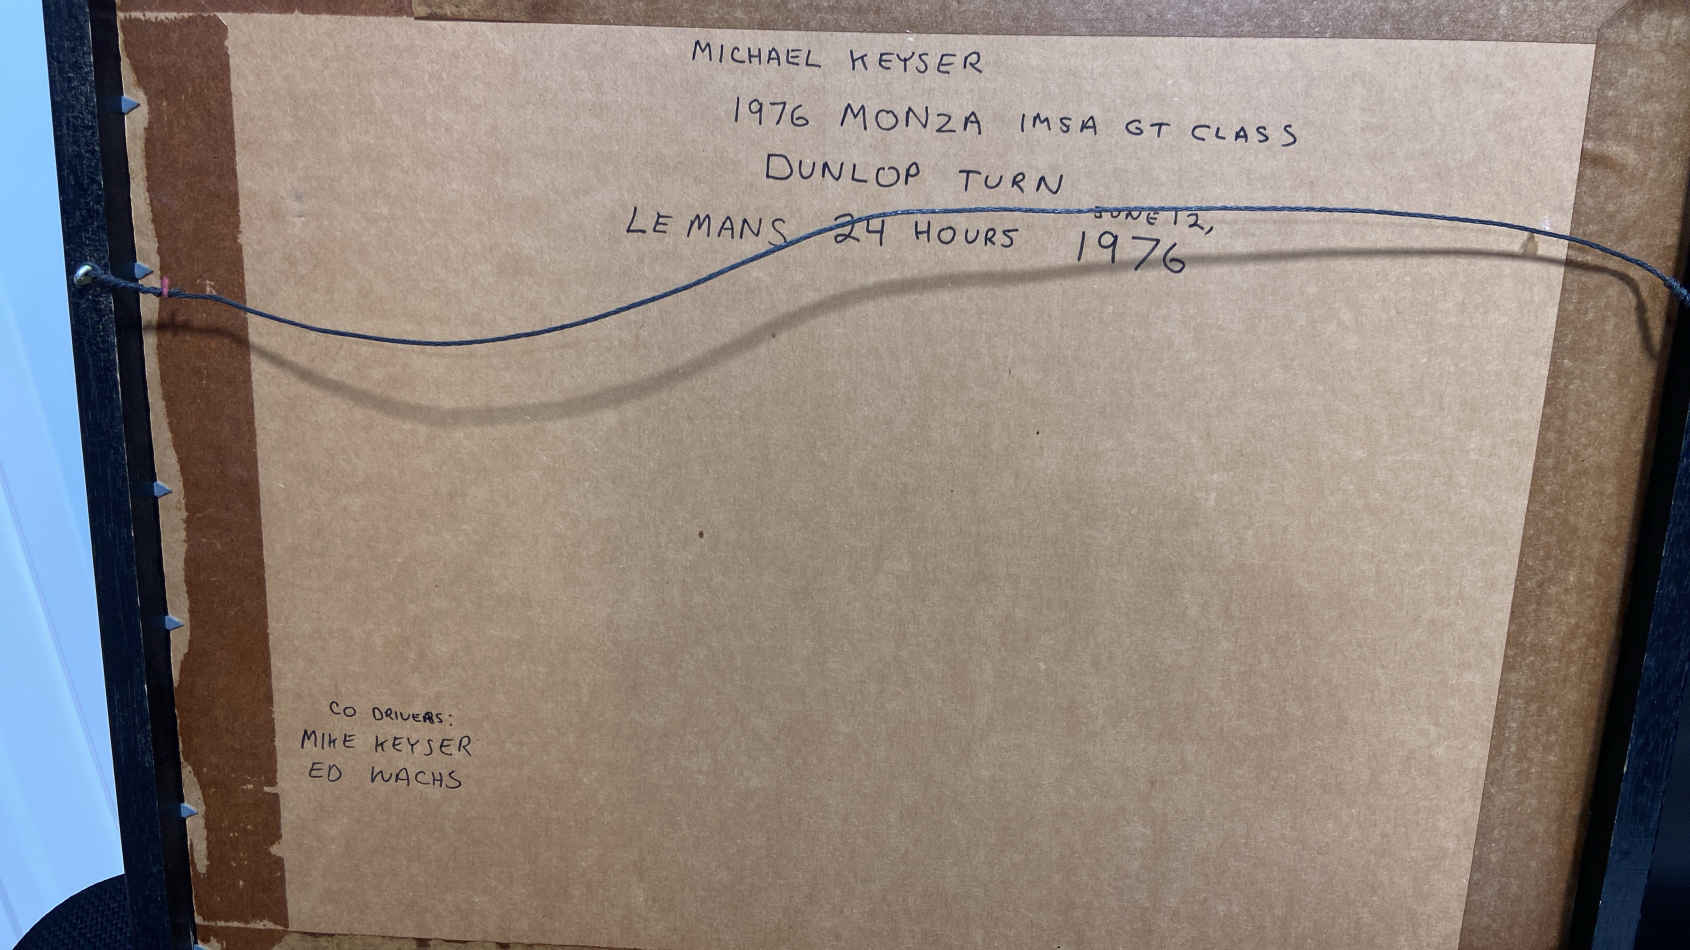 MICHAEL KEYSER
1976 MONZA IMSA GT CLASS
DUNLOP TURN
LE MANS 24 HOURS JUNE 12, 1976
CO DRIVERS:
MIKE KEYSER
ED WACHS